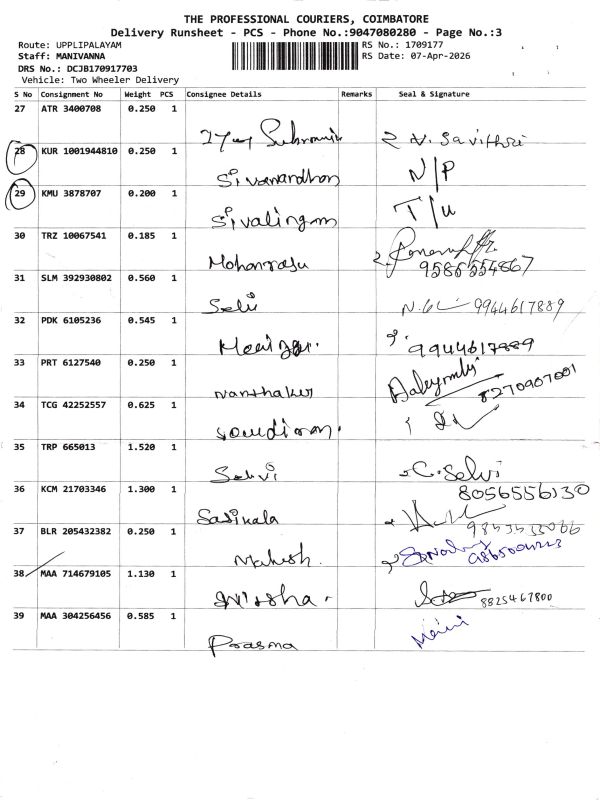 THE PROFESSIONAL COURIERS, COIMBATORE
Delivery Runsheet - PCS - Phone No.:9047080280 - Page No.:3
Route: UPPLIPALAYAM RS No.: 1709177
Staff: MANIVANNA RS Date: 07-Apr-2026
DRS No.: DCJB170917703
Vehicle: Two Wheeler Delivery
S No Consignment No Weight PCS Consignee Details Remarks Seal & Signature
27 ATR 3400708 0.250 1
V. Savithri
28 KUR 1001944810 0.250 1
Sivanandhan N/P
29 KMU 3878707 0.200 1
Sivalingam T/U
30 TRZ 10067541 0.185 1
Mohanrasu 9585554867
31 SLM 392930802 0.560 1
Selvi 9944617889
32 PDK 6105236 0.545 1
9944617889
33 PRT 6127540 0.250 1
Nanthakur 8270907001
34 TCG 42252557 0.625 1
35 TRP 665013 1.520 1
Selvi C. Selvi
8056556130
36 KCM 21703346 1.300 1
Sasikala
37 BLR 205432382 0.250 1
Mahesh.
38 MAA 714679105 1.130 1
8825467800
39 MAA 304256456 0.585 1
Prasma